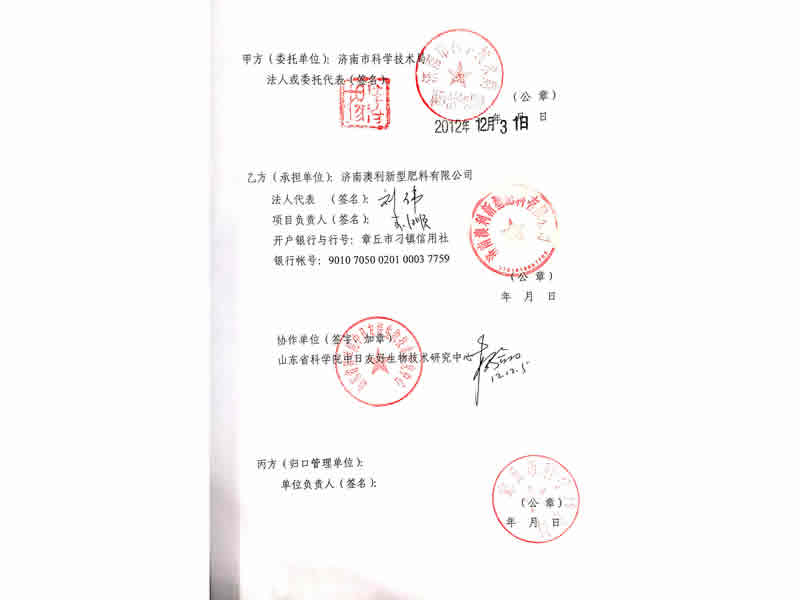 甲方（委托单位）：济南市科学技术局
法人或委托代表（签名）
（公 章）
2012年 12月 31日
年 月 日
乙方（承担单位）：济南澳利新型肥料有限公司
法人代表 （签名）：刘伟
项目负责人（签名）：
开户银行与行号：章丘市刁镇信用社
银行帐号：9010 7050 0201 0003 7759
济南澳利新型肥料有限公司
（公 章）
年 月 日
协作单位（签字、加章）
山东省科学院中日友好生物技术研究中心
12.12.5
丙方（归口管理单位）：
单位负责人（签名）：
（公 章）
年 月 日